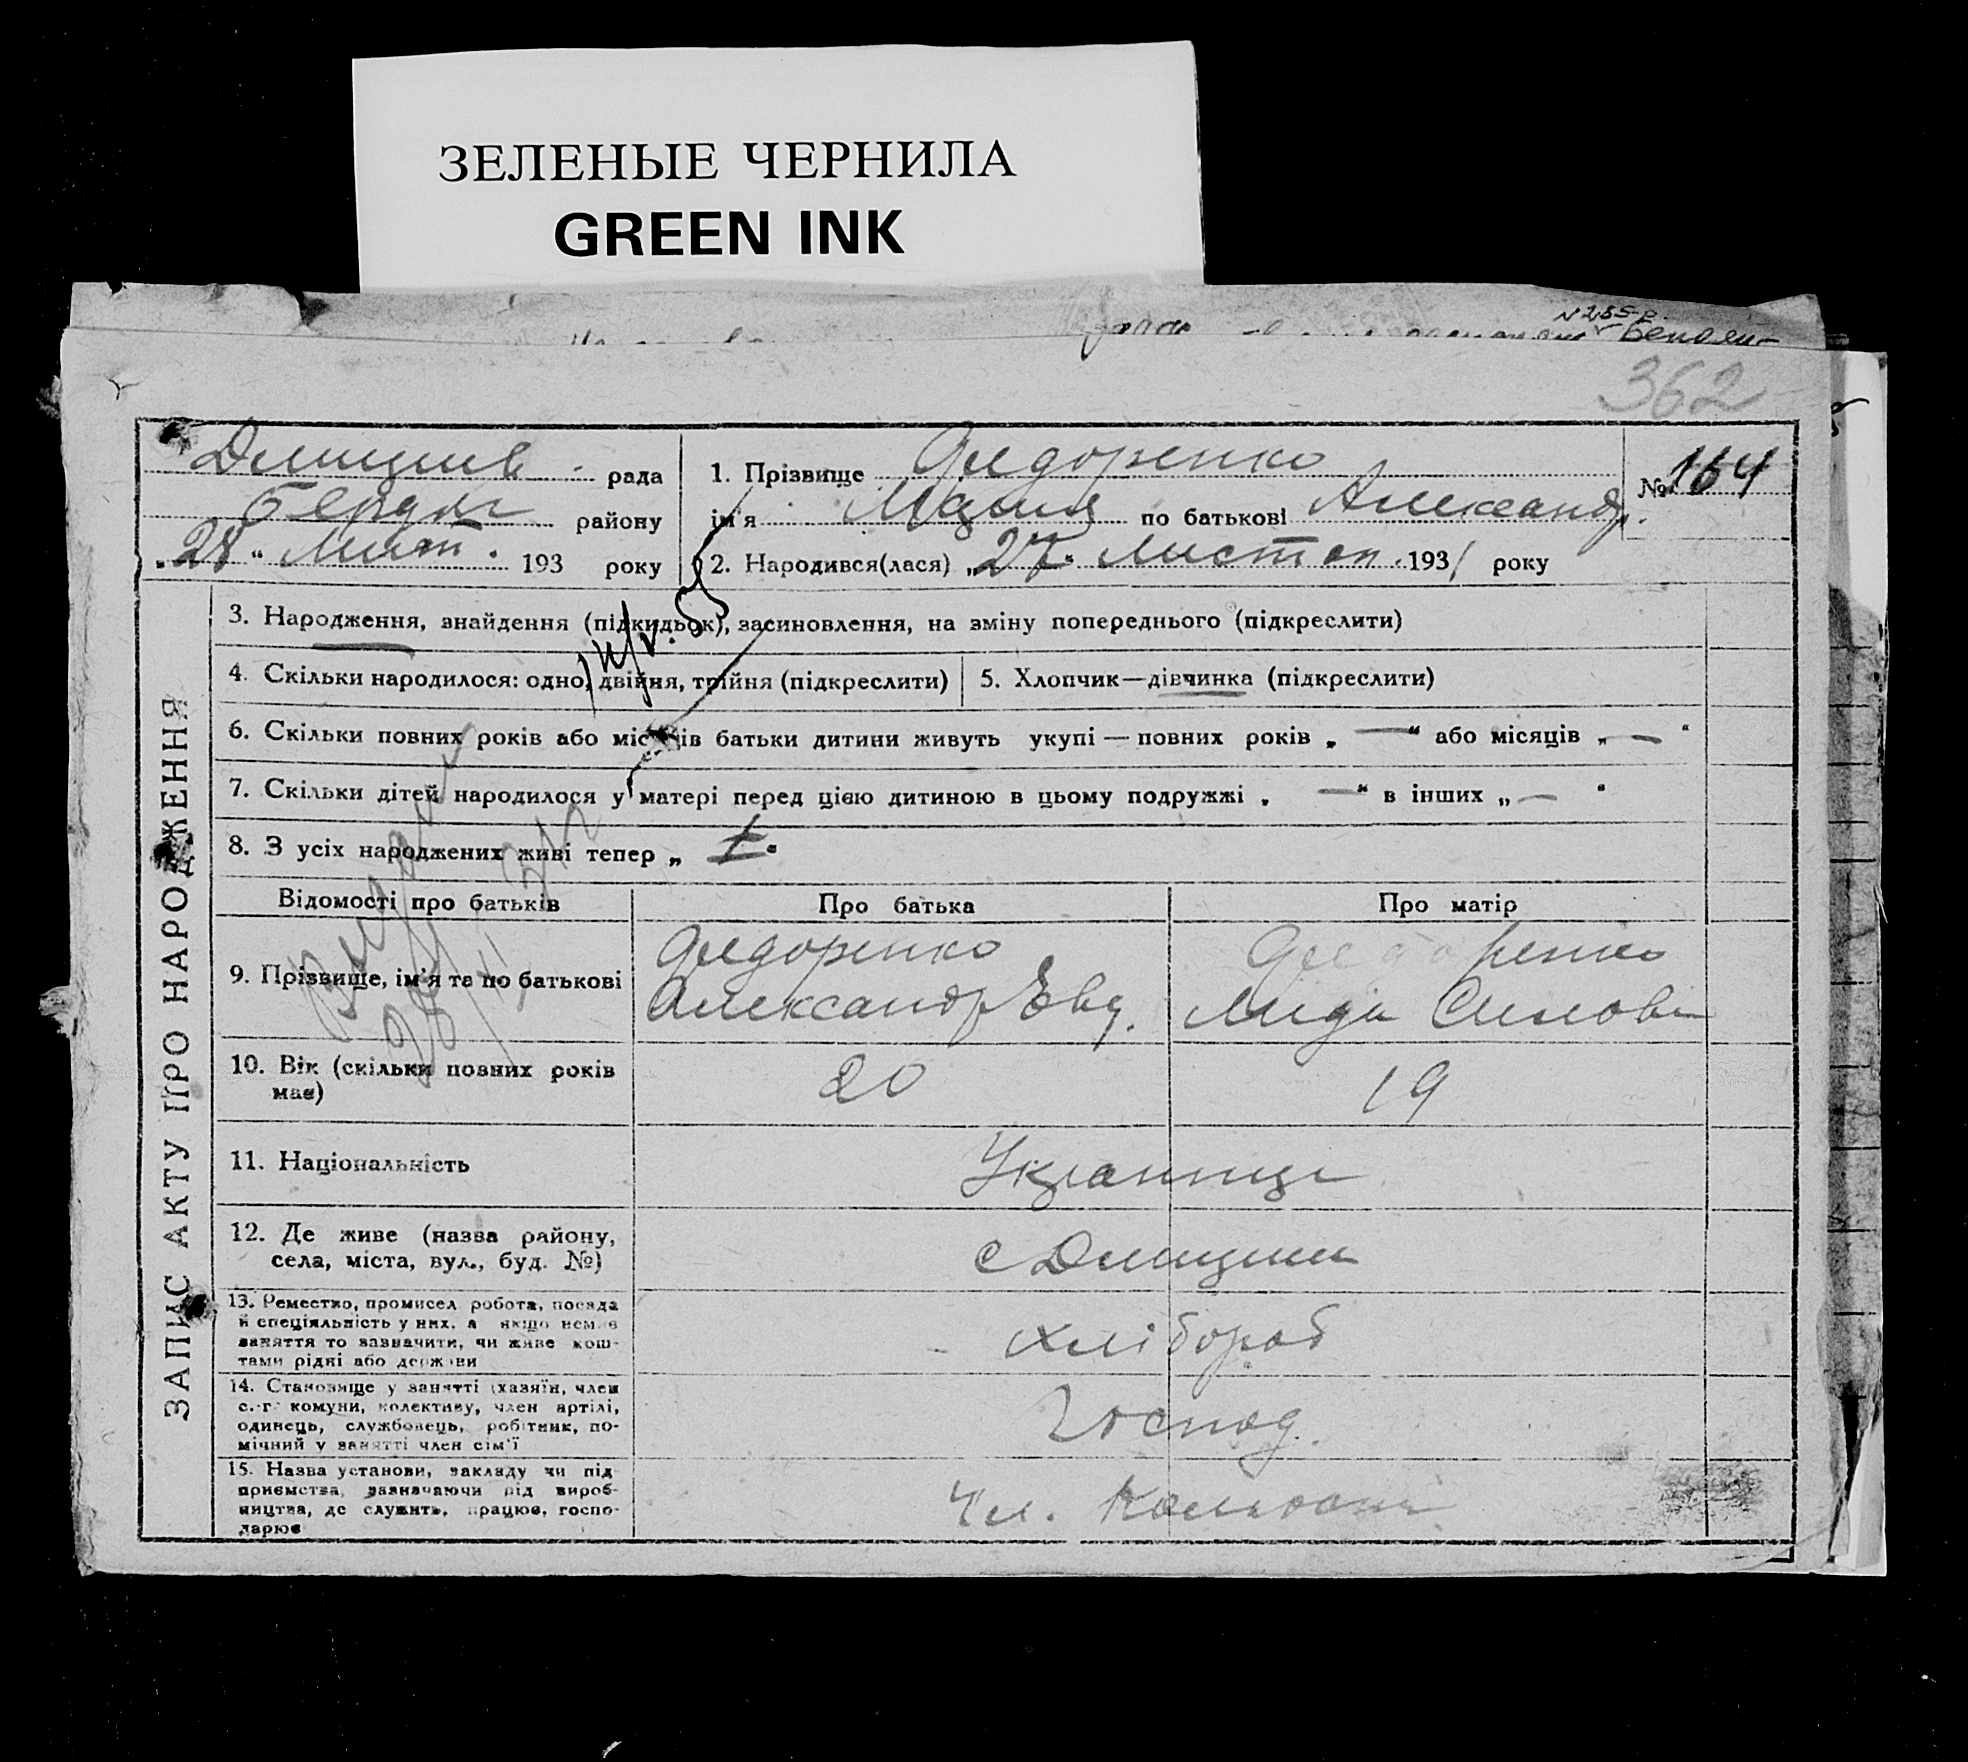 ЗЕЛЕНЫЕ ЧЕРНИЛА
GREEN INK
N 255
362
рада
району
"28" Лист. 193 року
1. Прізвище Федоренко
ім'я Мария по батькові Александр.
2. Народився(лася) "27" Листоп. 1931 року
№ 164
ЗАПИС АКТУ ПРО НАРОДЖЕННЯ
3. Народження, знайдення (підкидьок), засиновлення, на зміну попереднього (підкреслити)
4. Скільки народилося: одно, двійня, трійня (підкреслити)
5. Хлопчик—дівчинка (підкреслити)
6. Скільки повних років або місяців батьки дитини живуть укупі — повних років „ — “ або місяців „ — “
7. Скільки дітей народилося у матері перед цією дитиною в цьому подружжі „ — “ в інших „ — “
8. З усіх народжених живі тепер „
Відомості про батьків
Про батька
Про матір
9. Прізвище, ім'я та по батькові
Федоренко
Александр Евд.
Федоренко
Лида Силов
10. Вік (скільки повних років
має)
20
19
11. Національність
Украинци
12. Де живе (назва району,
села, міста, вул., буд. №)
с
13. Ремество, промисел робота, посада
й спеціяльність у них, а якщо немає
заняття то зазначити, чи живе кош-
тами рідні або держави
хлібороб
14. Становище у занятті (хазяїн, член
с.-г. комуни, колективу, член артілі,
одинець, службовець, робітник, по-
мічний у занятті член сім'ї
Господ.
15. Назва установи, закладу чи під
приємства, зазначаючи рід вироб-
ництва, де служить, працює, госпо-
дарює
Чл.